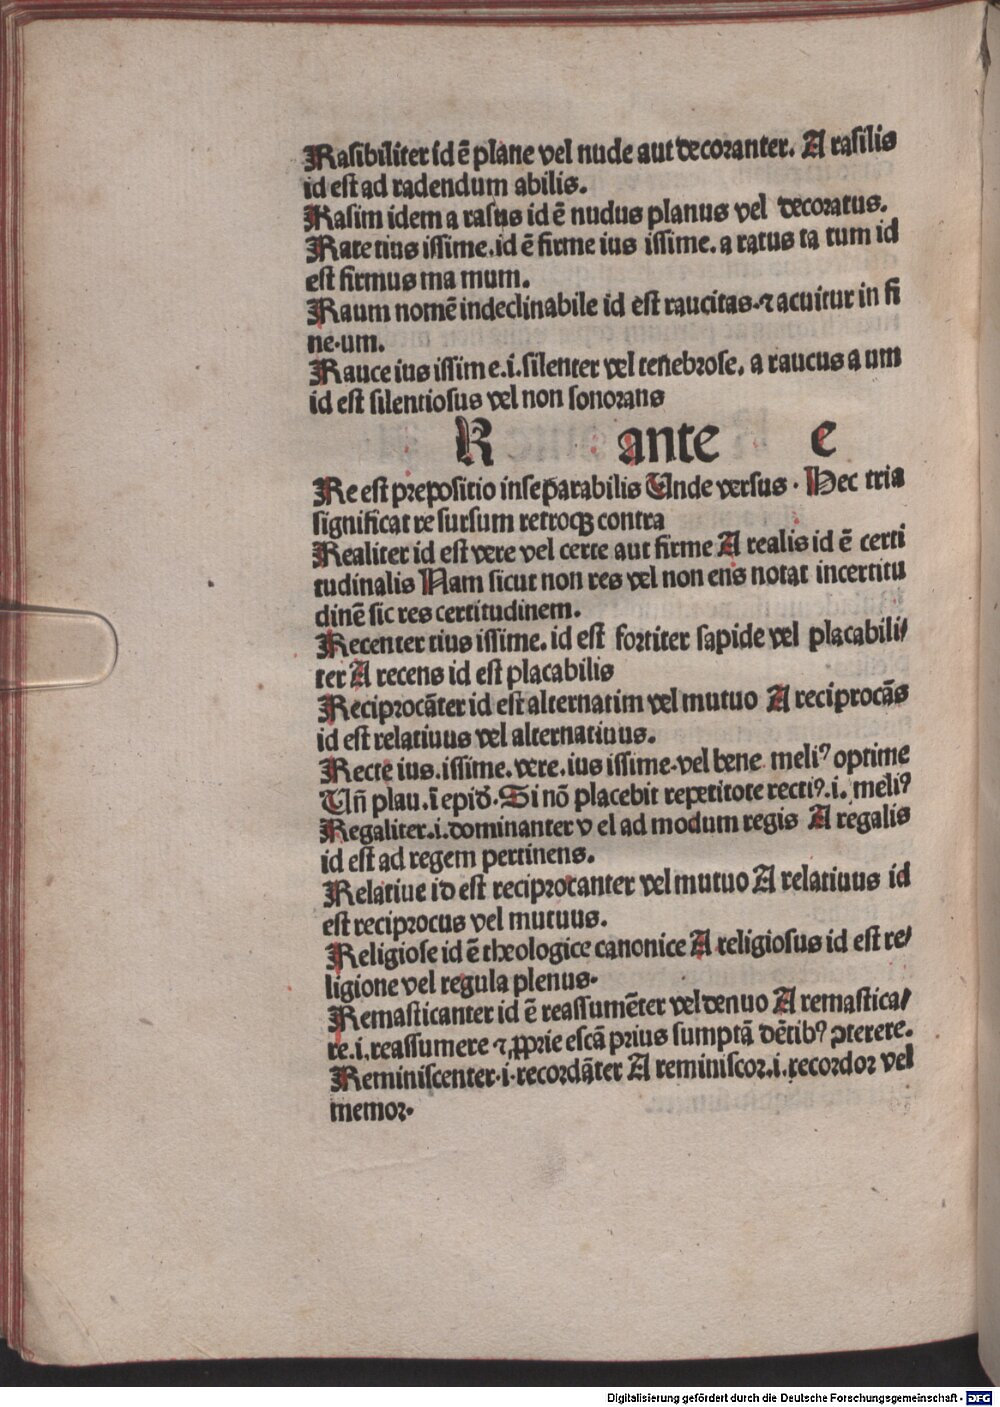 Rasibiliter id ē plane vel nude aut decoranter. A rasilis
id est ad radendum abilis.
Rasim idem a rasus id ē nudus planus vel decoratus.
Rate tius issime.id ē firme ius issime. a ratus ta tum id
est firmus ma mum.
Raum nomē indeclinabile id est raucitas.⁊ acuitur in fi
ne.um.
Rauce ius issime.i.silenter vel tenebrose, a raucus a um
id est silentiosus vel non sonorans
R ante e
Re est prepositio inseꝑarabilis Unde versus . Hec tria
significat re sursum retroqꝫ contra
Realiter id est vere vel certe aut firme A realis id ē certi
tudinalis Nam sicut non res vel non ens notat incertitu
dinē sic res certitudinem.
Recenter tius issime. id est fortiter sapide vel placabili/
ter A recens id est placabilis
Reciprocāter id est alternatim vel mutuo A reciprocās
id est relatiuus vel alternatiuus.
Recte ius.issime.vere.ius issime.vel bene meliꝰ optime
Un̄ plau.ī epid̄.Si nō placebit repetitote rectiꝰ.i. meliꝰ
Regaliter.i.dominanter v el ad modum regis A regalis
id est ad regem pertinens.
Relatiue id est reciprocanter vel mutuo A relatiuus id
est reciprocus vel mutuus.
Religiose id ē theologice canonice A religiosus id est re/
ligione vel regula plenus.
Remasticanter id ē reassumēter vel denuo A remastica/
re.i.reassumere ⁊ ꝓprie escā prius sumptā dētibꝰ ꝯterere.
Reminiscenter.i.recordāter A reminiscor.i.recordor vel
memor.
Digitalisierung gefördert durch die Deutsche Forschungsgemeinschaft - DFG